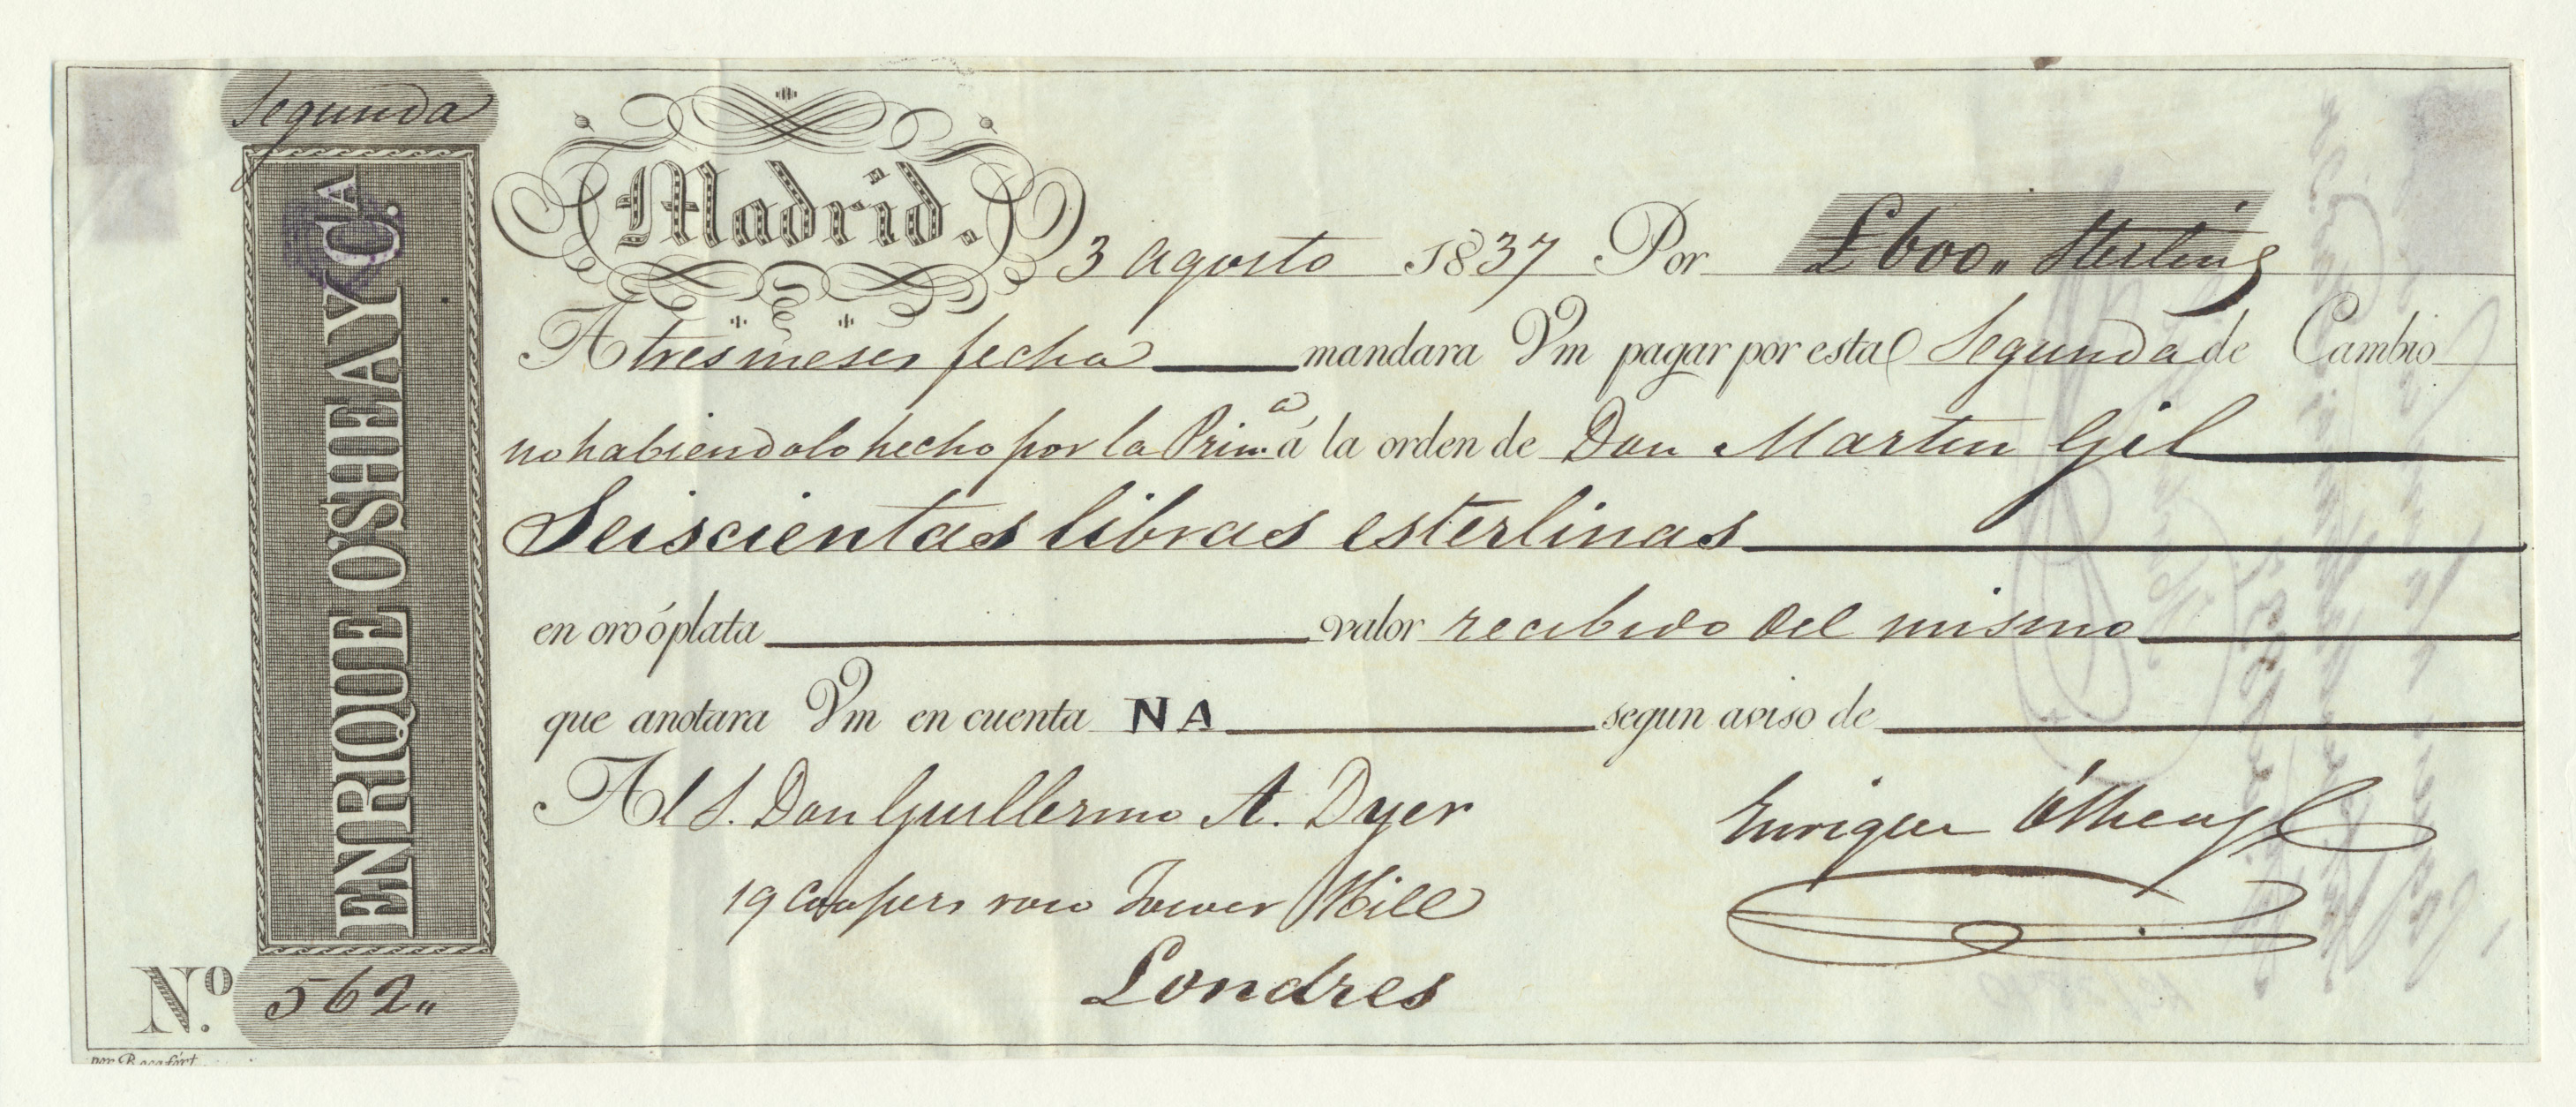 Segunda
ENRIQUE O'SHEA Y Cᴵᴬ.
Madrid. 3 Agosto 1837 Por £600,, Sterling
A tres meses fecha mandara Vm pagar por esta Segunda de Cambio
no habiendolo hecho por la Prim.ᵃ á la orden de Don Martin Gil
Seiscientas libras esterlinas
en oro ó plata valor recibido del mismo
que anotara Vm en cuenta NA segun aviso de
Al S. Don Guillermo A. Dyer
Enrique O'Shea
19 Coopers row Tower Hill
Londres
Nº. 562,,
por Rocafórt